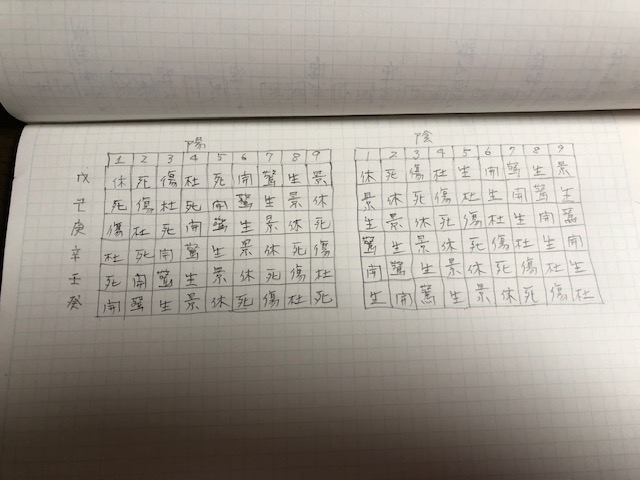 陽 陰
1 2 3 4 5 6 7 8 9 1 2 3 4 5 6 7 8 9
戊 休 死 傷 杜 死 開 驚 生 景 休 死 傷 杜 生 開 驚 生 景
己 死 傷 杜 死 開 驚 生 景 休 景 休 死 傷 杜 生 開 驚 生
庚 傷 杜 死 開 驚 生 景 休 死 生 景 休 死 傷 杜 生 開 驚
辛 杜 死 開 驚 生 景 休 死 傷 驚 生 景 休 死 傷 杜 生 開
壬 死 開 驚 生 景 休 死 傷 杜 開 驚 生 景 休 死 傷 杜 生
癸 開 驚 生 景 休 死 傷 杜 死 生 開 驚 生 景 休 死 傷 杜